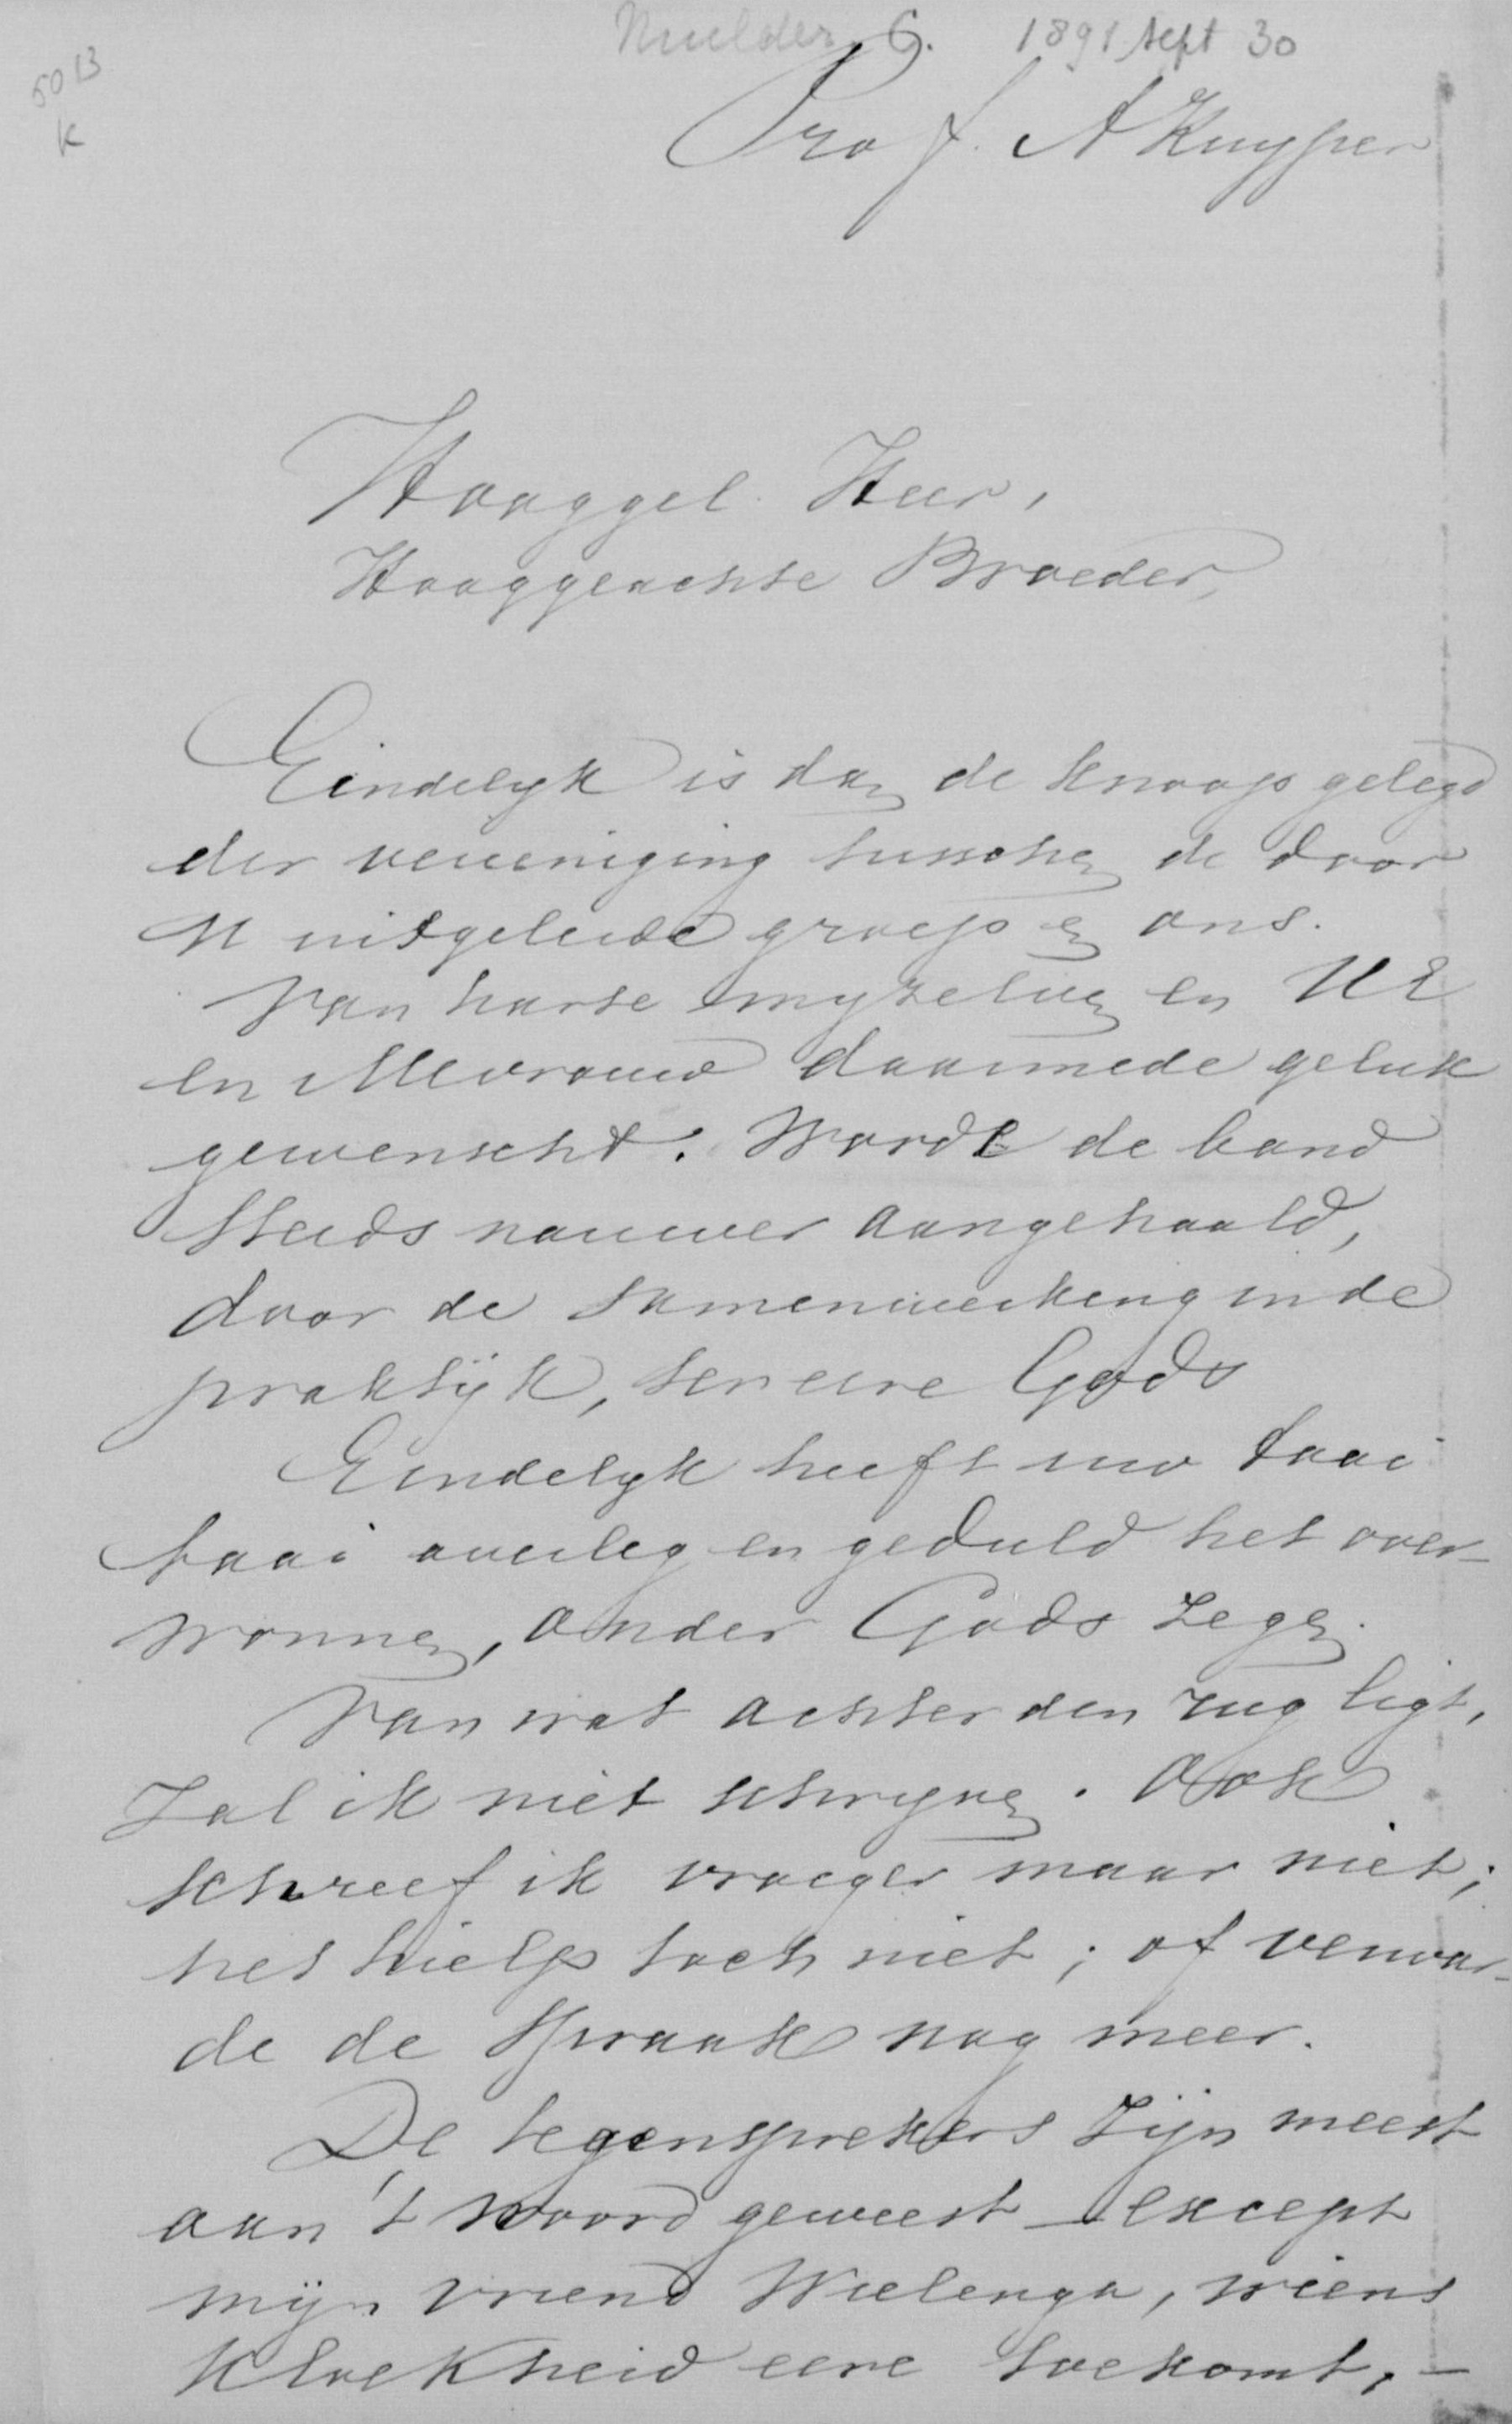 Mulder, G. 1891 Sept 30
5013
K
Prof. A Kuyper
Hooggel. Heer,
Hooggeachte Broeder,
Eindelyk is dan de knoop gelegd
der vereeniging tusschen de door
U uitgeleide groep en ons.
Van harte myzelven en UE
en Mevrouw daarmede geluk
gewenscht. Worde de band
steeds nauwer aangehaald,
door de samenwerking in de
praktijk, ter eere Gods
Eindelyk heeft uw taai
taai overleg en geduld het over-
wonnen, onder Gods zegen.
Van wat achter den rug ligt,
zal ik niet schryven. Ook
schreef ik vroeger maar niet;
het hielp toch niet; of verwar-
de de spraak nog meer.
De tegensprekers zijn meest
aan 't woord geweest except
mijn vriend Wielenga, wiens
kloekheid eere toekomt, -